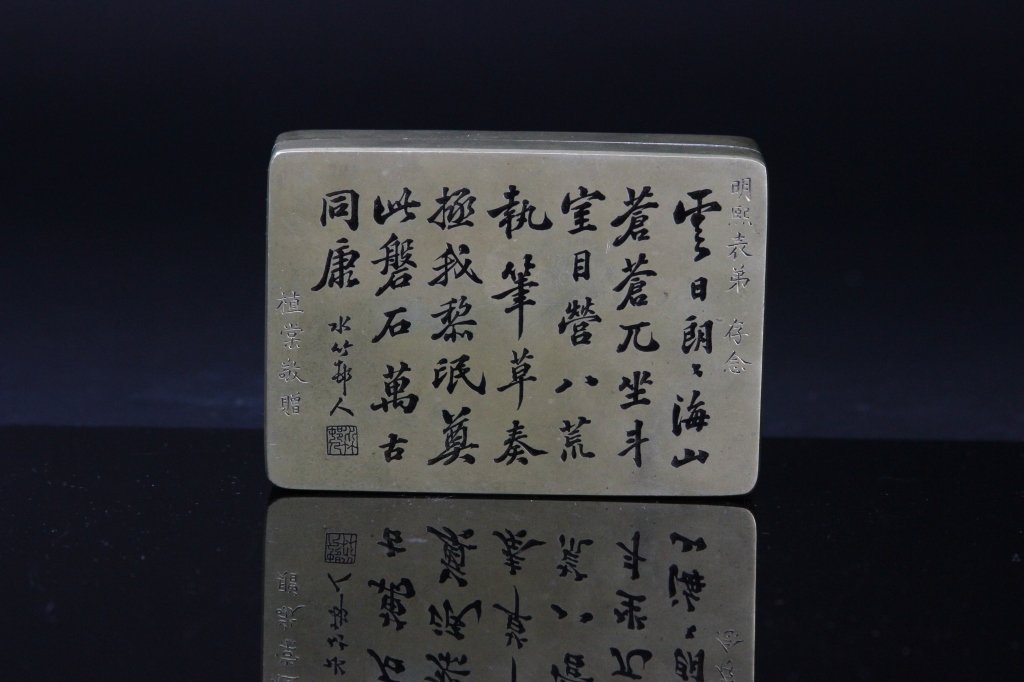 明熙表弟 存念
雲日朗〻海山
蒼蒼兀坐斗
室目營八荒
執筆草奏
拯我黎民奠
此磐石萬古
同康
水竹邨人
植棠敬贈